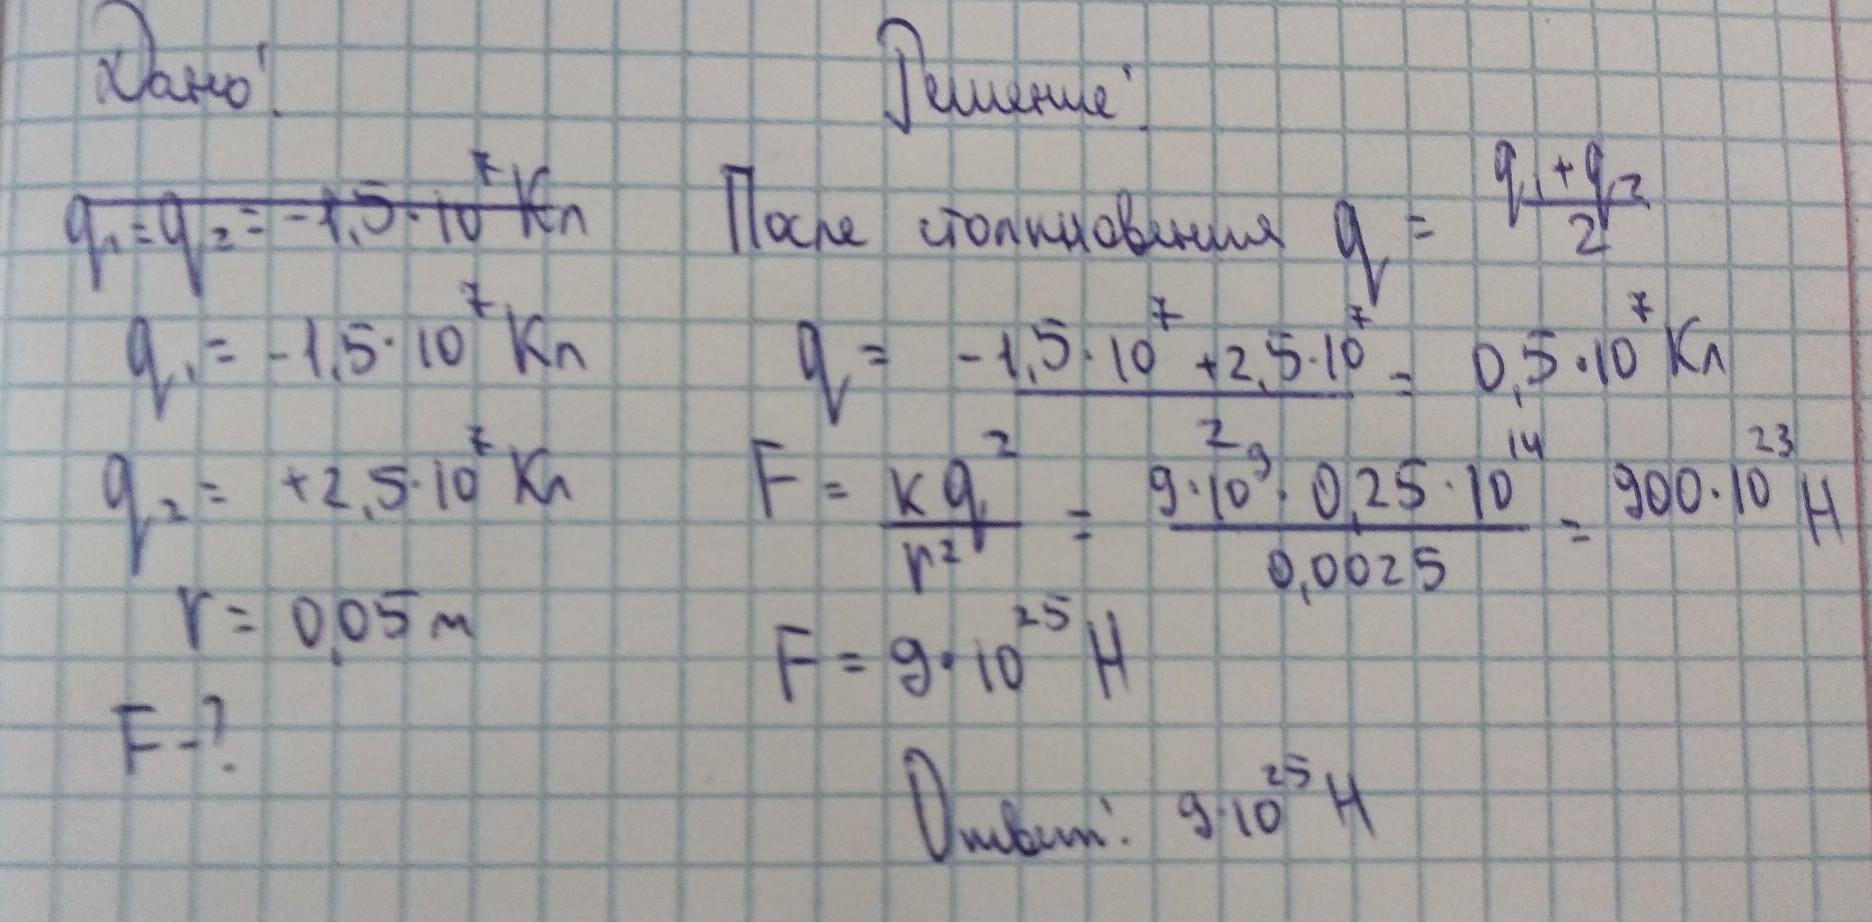 Дано:
q₁ = q₂ = -1,5·10⁷ Кл
q₁ = -1,5·10⁷ Кл
q₂ = +2,5·10⁷ Кл
r = 0,05 м
F - ?
Решение:
После столкновения q = (q₁+q₂)/2
q = (-1,5·10⁷ + 2,5·10⁷)/2 = 0,5·10⁷ Кл
F = kq²/r² = (9·10⁹ · 0,25·10¹⁴)/0,0025 = 900·10²³ Н
F = 9·10²⁵ Н
Ответ: 9·10²⁵ Н